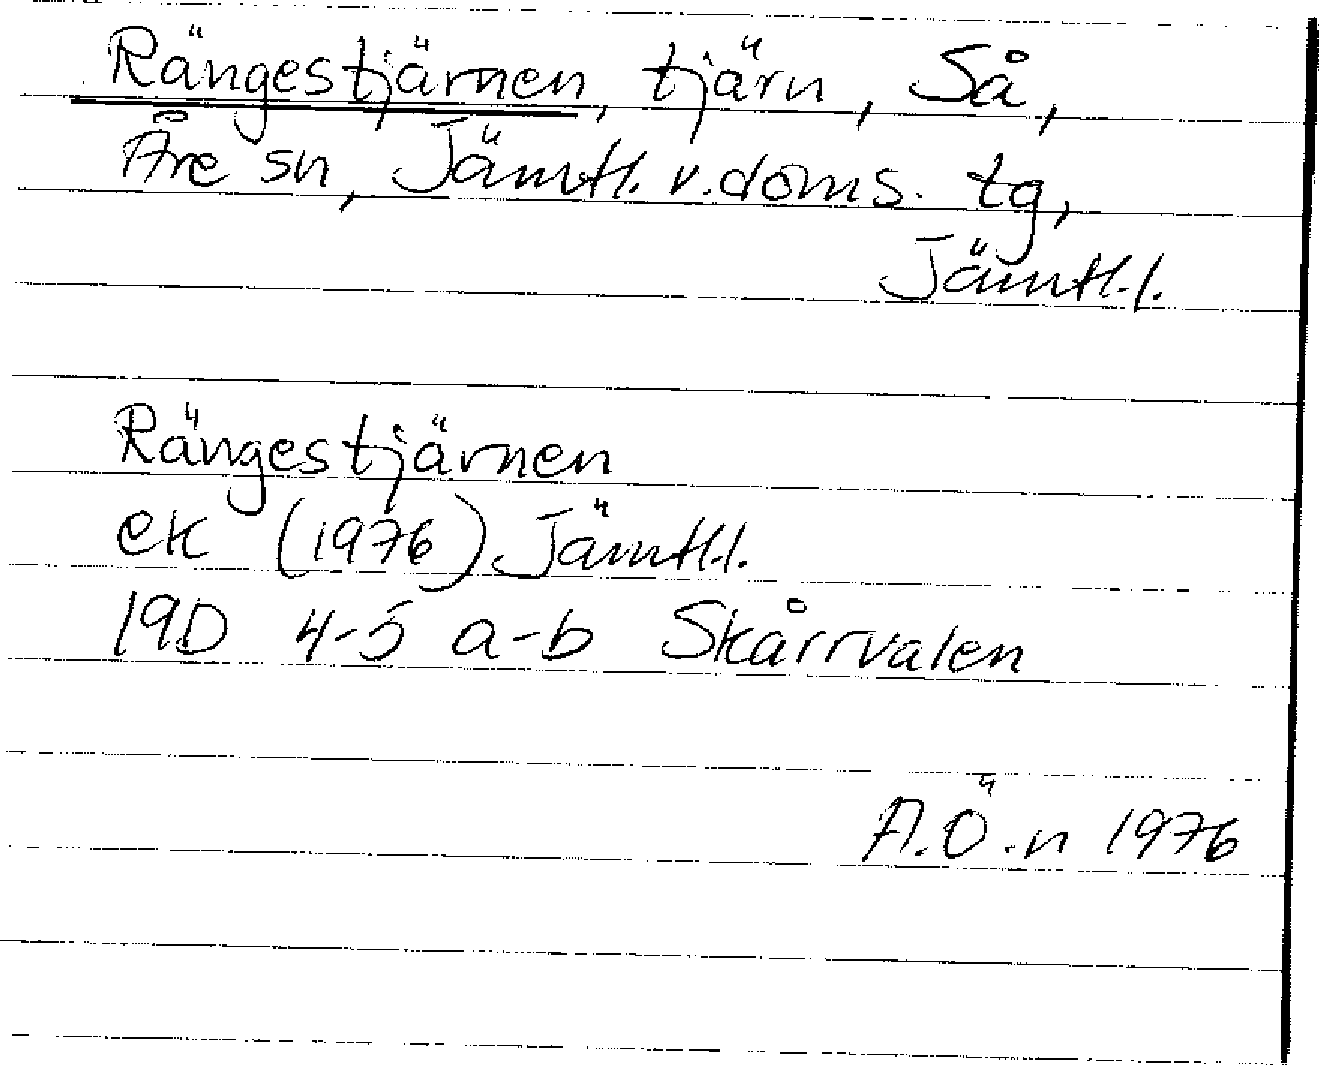 Rängestjärnen, tjärn, Så,
Åre sn, Jämtl. v. doms. tg,
Jämtl. l.
Rängestjärnen
ek (1976) Jämtl. l.
19D 4-5 a-b Skårrvalen
A.Ö.n 1976